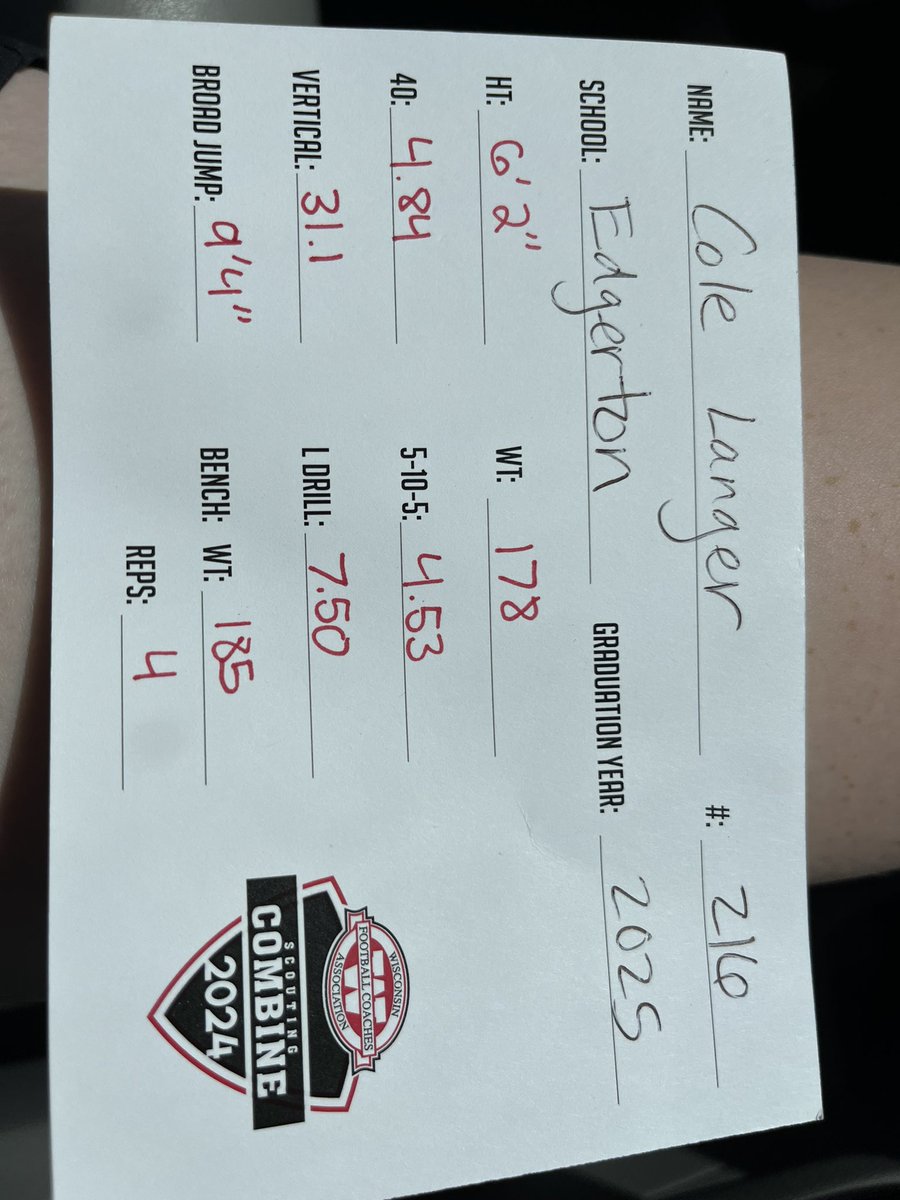 NAME: Cole Langer #: 216
SCHOOL: Edgerton GRADUATION YEAR: 2025
HT: 6'2" WT: 178
40: 4.84 5-10-5: 4.53
VERTICAL: 31.1 L DRILL: 7.50
BROAD JUMP: 9'4" BENCH: WT: 185
REPS: 4
WISCONSIN
FOOTBALL COACHES
ASSOCIATION
SCOUTING
COMBINE
2024